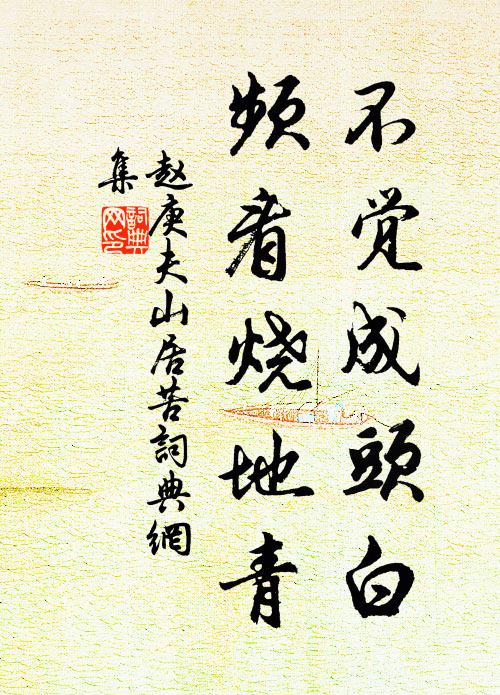 不觉成頭白
频看烧地青
赵庚夫山居苦詞典網
集
詞典网印